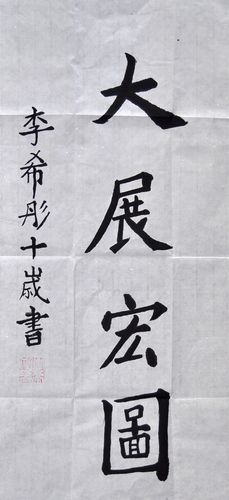 大展宏圖
李希彤十歳書